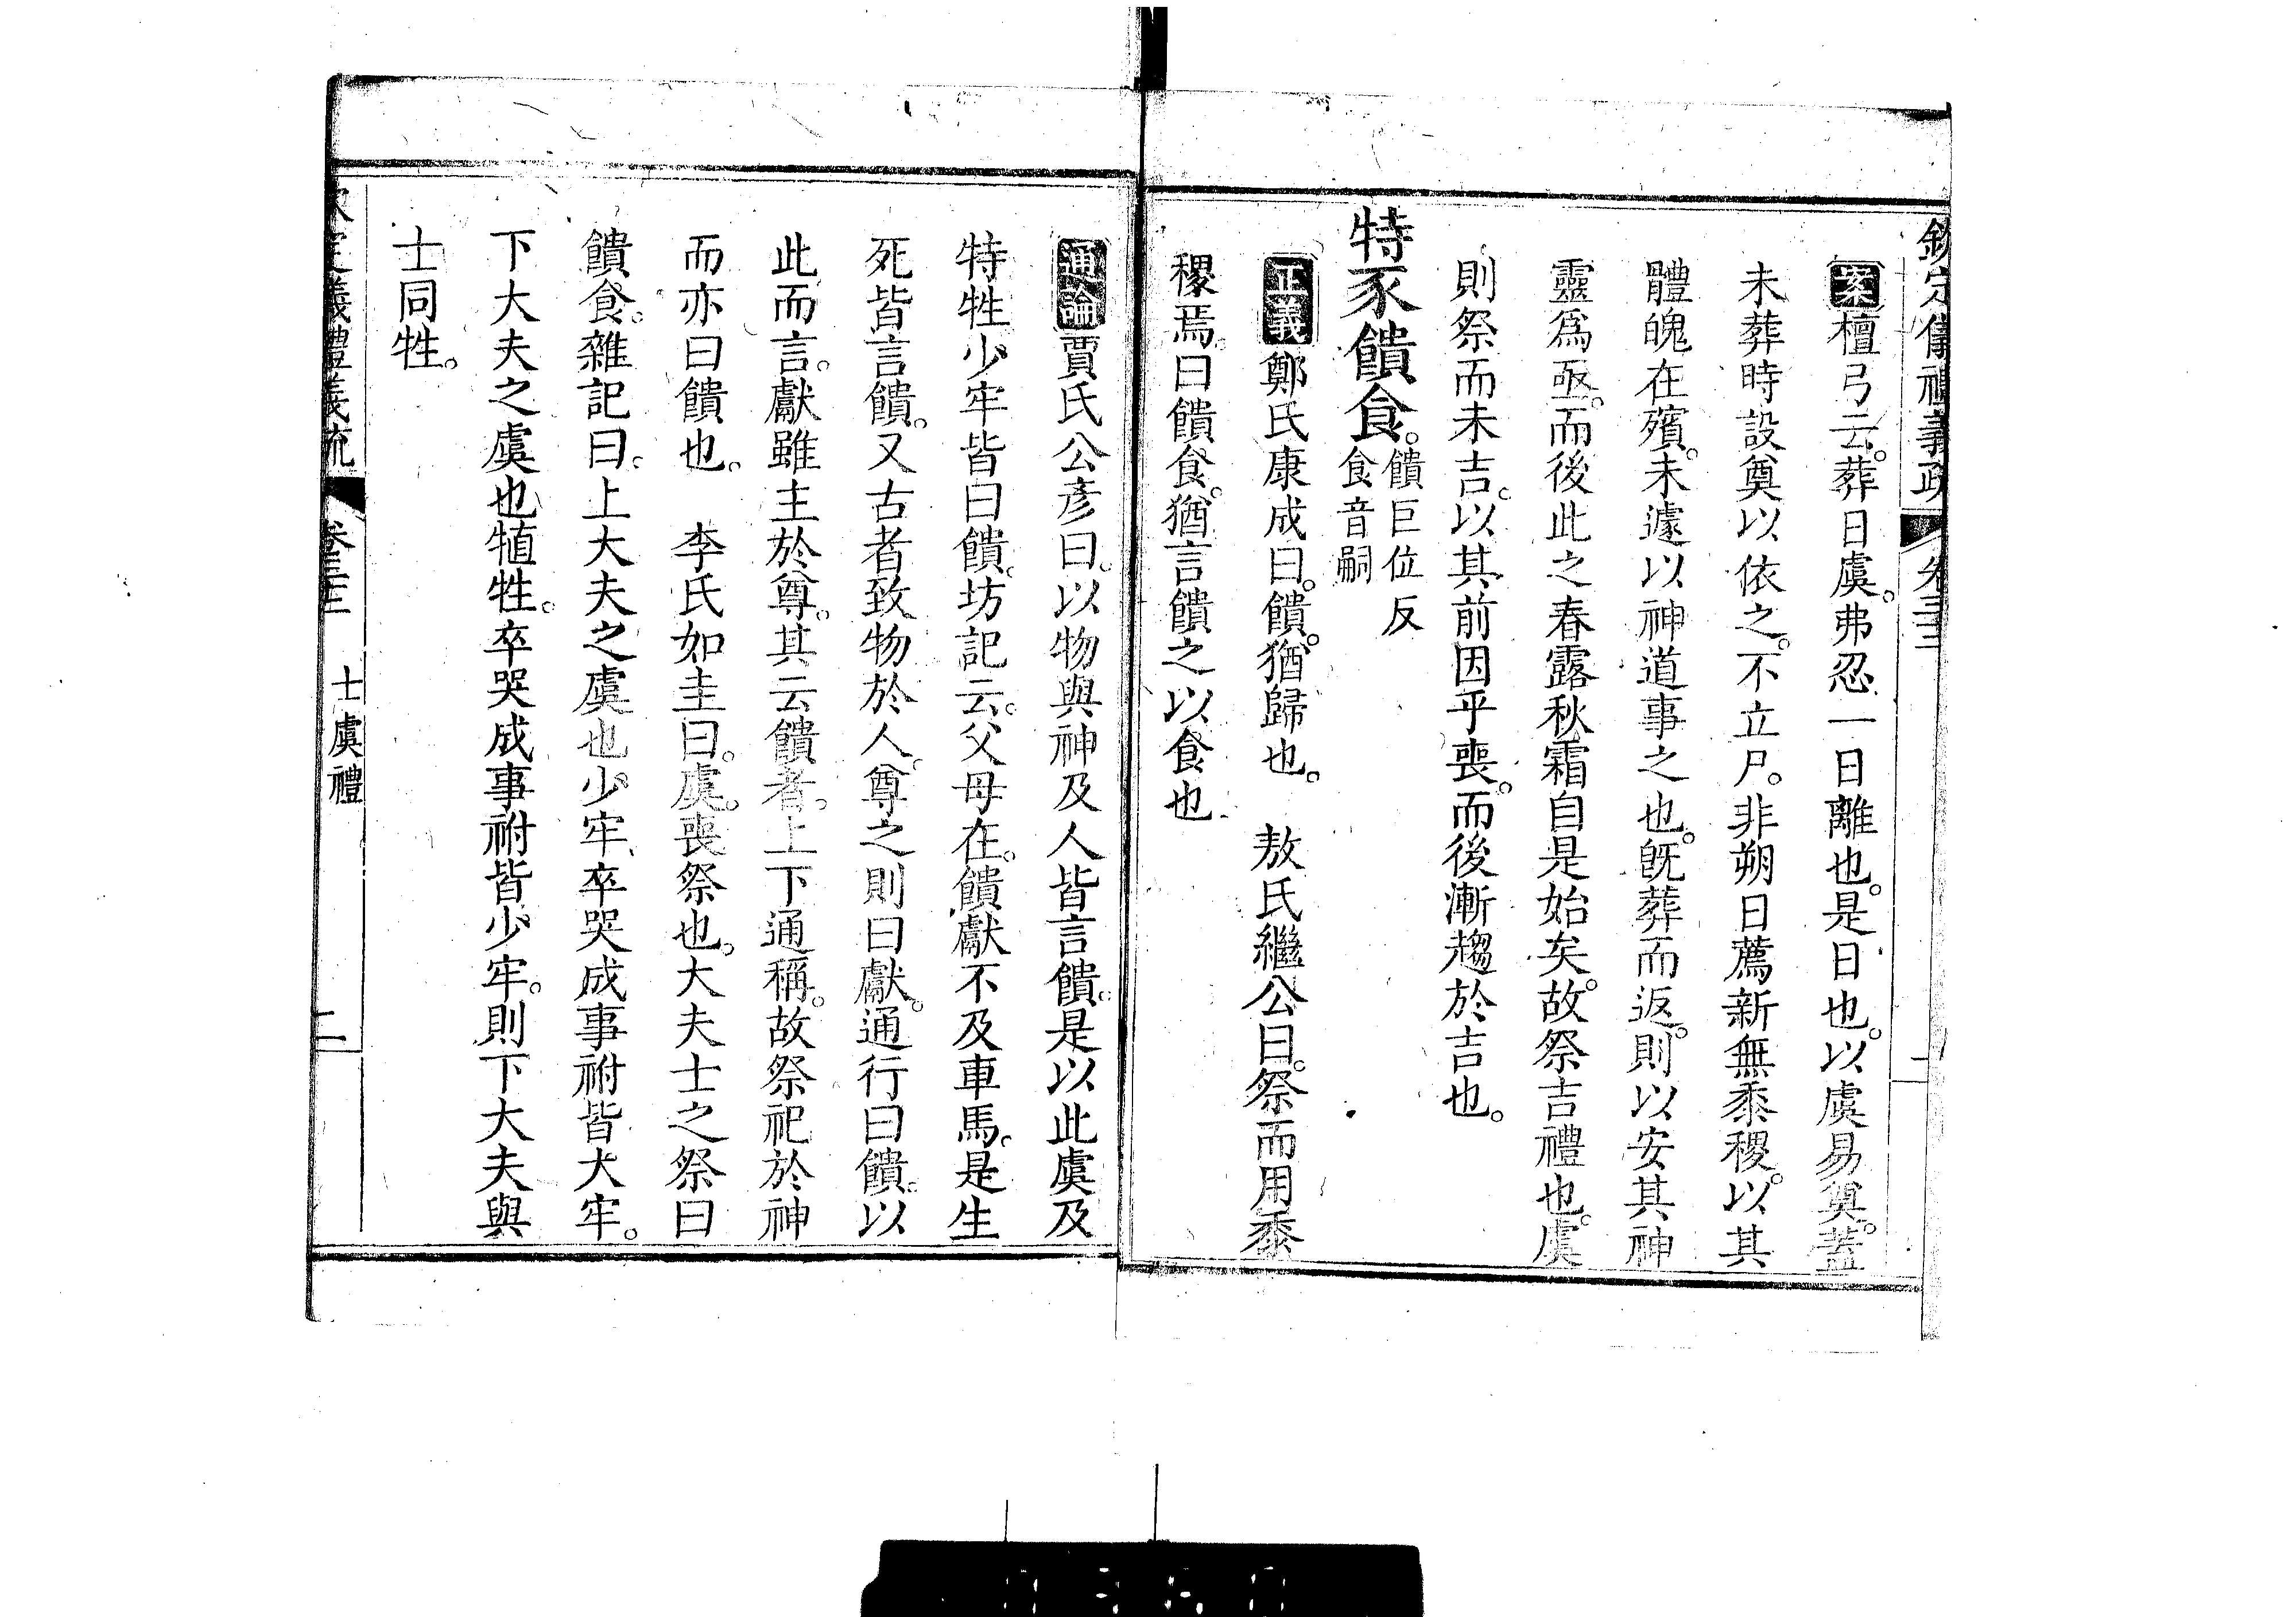 欽定儀禮義疏 卷三十三 一
案檀弓云。葬日虞。弗忍一日離也。是日也。以虞易奠。蓋
未葬時設奠以依之。不立尸。非朔日薦新無黍稷。以其
體魄在殯。未遽以神道事之也。旣葬而返。則以安其神
靈爲亟。而後此之春露秋霜自是始矣。故祭吉禮也。虞
則祭而未吉。以其前因乎喪。而後漸趨於吉也。
特豕饋食。饋巨位反
食音嗣
正義鄭氏康成曰。饋。猶歸也。 敖氏繼公曰。祭而用黍
稷焉。曰饋食。猶言饋之以食也
通論賈氏公彥曰。以物與神及人皆言饋。是以此虞及
特牲少牢皆曰饋。坊記云。父母在。饋獻不及車馬。是生
死皆言饋。又古者致物於人。尊之則曰獻。通行曰饋。以
此而言。獻雖主於尊。其云饋者。上下通稱。故祭祀於神
而亦曰饋也。 李氏如圭曰。虞。喪祭也。大夫士之祭曰
饋食。雜記曰。上大夫之虞也少牢卒哭成事祔皆大牢。
下大夫之虞也犆牲。卒哭成事祔皆少牢。則下大夫與
士同牲。
欽定儀禮義疏 卷三十三 士虞禮 二